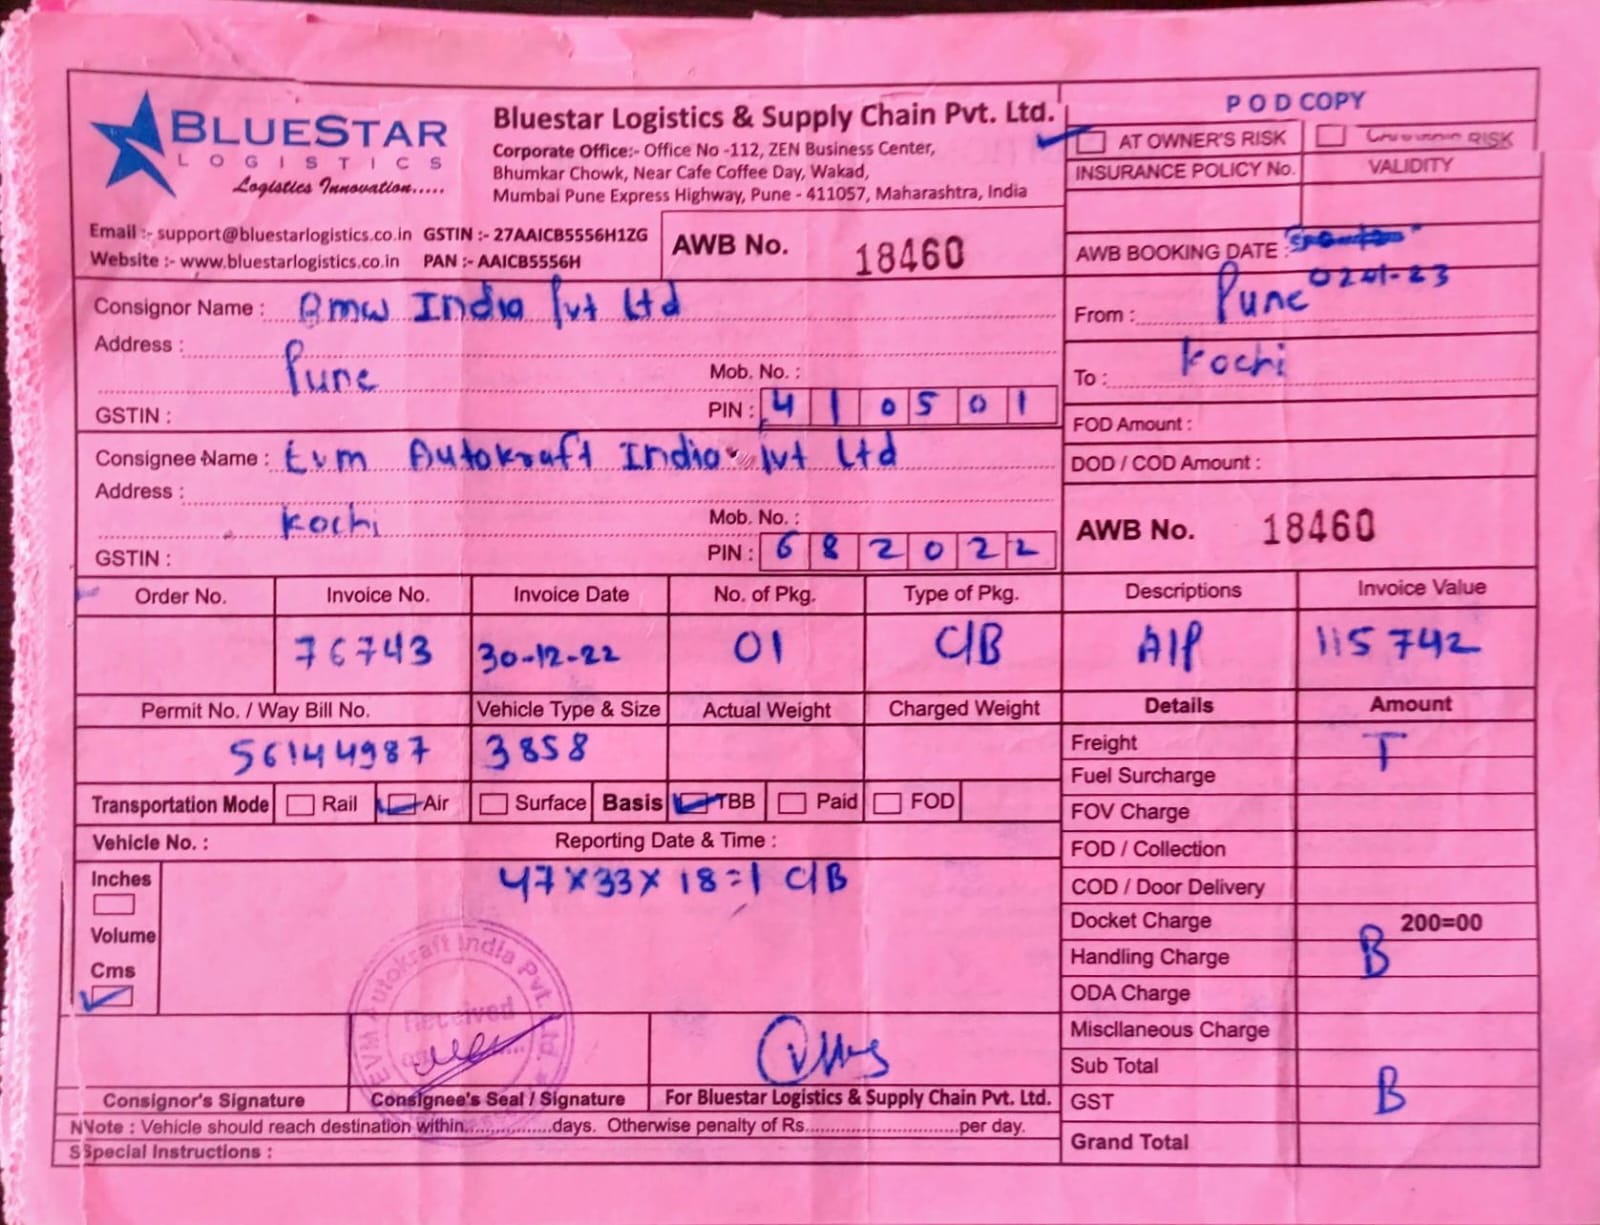 BLUESTAR
LOGISTICS
Logistics Innovation.....
Bluestar Logistics & Supply Chain Pvt. Ltd.
Corporate Office:- Office No -112, ZEN Business Center,
Bhumkar Chowk, Near Cafe Coffee Day, Wakad,
Mumbai Pune Express Highway, Pune - 411057, Maharashtra, India
POD COPY
AT OWNER'S RISK RISK
INSURANCE POLICY No. VALIDITY
Email :- support@bluestarlogistics.co.in GSTIN :- 27AAICB5556H1ZG
Website :- www.bluestarlogistics.co.in PAN :- AAICB5556H
AWB No. 18460
AWB BOOKING DATE :
Consignor Name : Bmw India Pvt Ltd
Address :
Pune
Mob. No. :
GSTIN :
PIN : 410501
From : Pune
To : Kochi
FOD Amount :
DOD / COD Amount :
Consignee Name : Evm Autokraft India Pvt Ltd
Address :
Kochi
Mob. No. :
GSTIN :
PIN : 682022
AWB No. 18460
Order No. Invoice No. Invoice Date No. of Pkg. Type of Pkg. Descriptions Invoice Value
76743 30-12-22 01 C/B A/P 115742
Permit No. / Way Bill No. Vehicle Type & Size Actual Weight Charged Weight Details Amount
56144987 3858
Transportation Mode Rail Air Surface Basis TBB Paid FOD
Vehicle No. : Reporting Date & Time :
Inches
Volume
Cms
47×33×18=1 C/B
Freight T
Fuel Surcharge
FOV Charge
FOD / Collection
COD / Door Delivery
Docket Charge 200=00
Handling Charge B
ODA Charge
Miscllaneous Charge
Sub Total
GST B
Grand Total
EVM Autokraft India Pvt. Ltd.
Received
Consignor's Signature Consignee's Seal / Signature For Bluestar Logistics & Supply Chain Pvt. Ltd.
Note : Vehicle should reach destination within.................days. Otherwise penalty of Rs..............................per day.
Special Instructions :